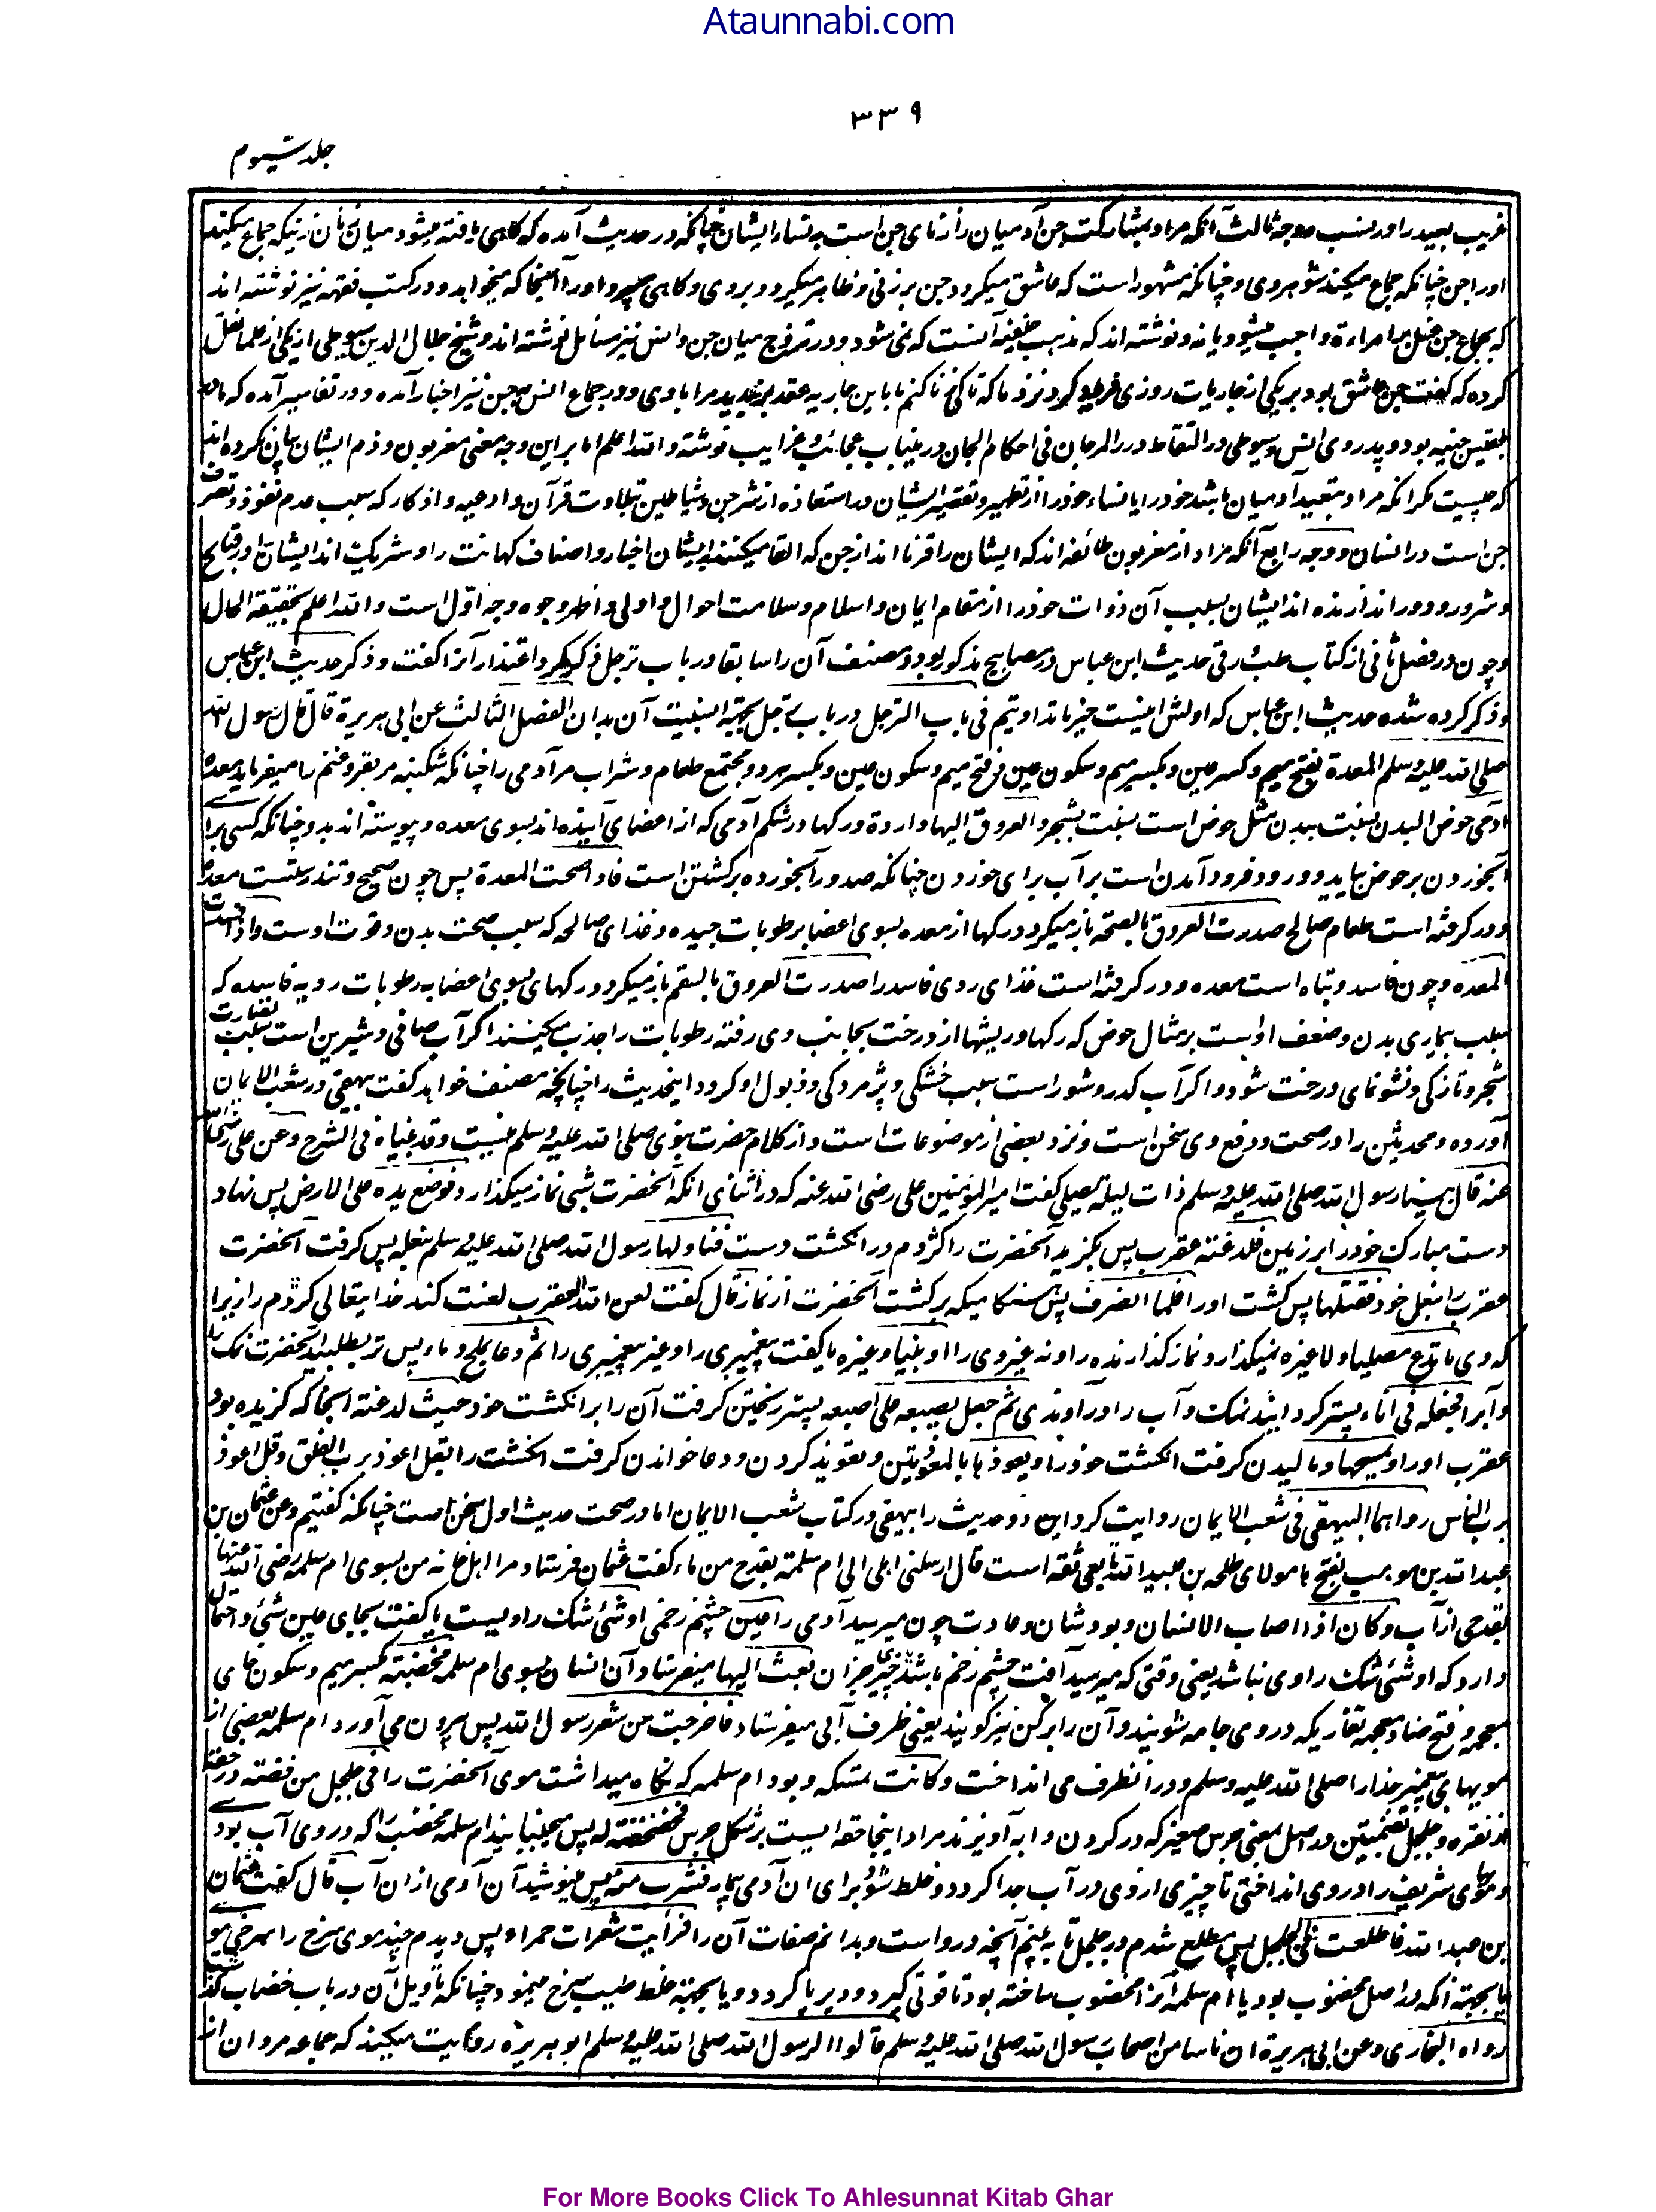 Ataunnabi.com
۳۳۹
جلد سیوم
غریب بعید را در نسب و وجه ثالث آنکه مراد بمشارکت جن آدمیان را زنای جن است به نساء ایشان چنانکه در حدیث آمده که گاهی یافته میشود میان زنان زنیکه جماع میکند
او را جن چنانکه جماع میکند شوهر وی و چنانکه مشهور است که عاشق میگردد جن بر زنی و ظاهر میگردد بروی و گاهی میبرد او را آنجا که میخواهد و در کتب فقه نیز نوشته اند
که بجماع جن غسل بر امراءة واجب میشود یا نه و نوشته اند که مذهب حنفیه آنست که نمی شود و در تزوج میان جن و انس نیز مسائل نوشته اند و شیخ جلال الدین سیوطی از یکی از علما نقل
کرده که گفت جن عاشق بود بر یکی از جاریات روزی
بلقیس جنیه بود و پدر وی انس و سیوطی در التقاط درر المرجان فی احکام الجان درینباب عجائب و غرایب نوشته والله اعلم اما بر این وجه معنی مغربون و ذم ایشان بیان نکرده اند
که چیست مگر آنکه مراد بتبعید آدمیان باشد خود را یا نساء خود را از تطهیر و تقصیر ایشان در استعاذه از شر جن و شیاطین بتلاوت قرآن و ادعیه و اذکار که سبب عدم نفوذ و تصرف
جن است در انسان و وجه رابع آنکه مراد از مغربون طائفه اند که ایشان را قرنا اند از جن که القا میکنند بایشان اخبار و اصناف کهانت را و شریک اند ایشان را در قبایح
و شرور و دور اندازنده اند ایشان بسبب آن ذوات خود را از مقام ایمان و اسلام و سلامت احوال و اولی و اظهر وجوه وجه اول است والله اعلم بحقیقة الحال
و چون در فصل ثانی از کتاب طب و رقی حدیث ابن عباس در مصابیح مذکور بود و مصنف آن را سابقا در باب ترجل ذکر کرد اعتذار آنرا گفت و ذکر حدیث ابن عباس
و ذکر کرده شده حدیث ابن عباس که اولش اینست خیر ما تداویتم فی باب الترجل در باب ترجل بجهت انسبیت آن بدان الفصل الثالث عن ابی هریرة قال قال رسول الله
صلی الله علیه وسلم المعدة بفتح میم و کسر عین و بکسر میم و سکون عین و فتح میم و سکون عین و بکسر هر دو مجتمع طعام و شراب مر آدمی را چنانکه شکنبه مر بقر و غنم را میفرماید معده
آدمی حوض البدن نسبت ببدن مثل حوض است بنسبت بشجر و العروق الیها واردة و رگها در شکم آدمی که از اعضای آینده اند بسوی معده و پیوسته اند بدو چنانکه کسی برای
آبخوردن بر حوض بیاید و ورود فرود آمدن است بر آب برای خوردن چنانکه صدور آبخورده برگشتن است فاذا صحت المعدة پس چون صحیح و تندرست است معده
و در گرفته است طعام صالح صدرت العروق بالصحة باز میگردد رگها از معده بسوی اعضا برطوبات جیده و غذای صالحه که سبب صحت بدن و قوت اوست و اذا فسدت
المعده و چون فاسد و تباه است معده و در گرفته است غذای ردی فاسد را صدرت العروق بالسقم باز میگردد رگهای بسوی اعضا به رطوبات ردیه فاسده که
سبب بیماری بدن و ضعف اوست بر مثال حوض که رگها و ریشها از درخت بجانب وی رفته رطوبات را جذب میکنند اگر آب صافی و شیرین است سبب نضارت
شجر و تازگی و نشو نمای درخت شود و اگر آب کدر و شور است سبب خشکی و پژمردگی و ذبول او گردد اینحدیث را چنانچه مصنف خواهد گفت بیهقی در شعب الایمان
آورده و محدثین را در صحت و رفع وی سخن است و نزد بعضی از موضوعات است و از کلام حضرت نبوی صلی الله علیه وسلم نیست و قد بیناه فی الشرح و عن علی رضی الله
عنه قال بینما رسول الله صلی الله علیه وسلم ذات لیلة یصلی گفت امیر المؤمنین علی رضی الله عنه که در اثنای آنکه آنحضرت شبی نماز میگذارد فوضع یده علی الارض پس نهاد
دست مبارک خود را بر زمین فلدغته عقرب پس بگزید آنحضرت را کژدم در انگشت دست فناولها رسول الله صلی الله علیه وسلم بنعله پس گرفت آنحضرت
عقرب را بنعل خود فقتلها پس کشت او را فلما انصرف پس هنگامیکه برگشت آنحضرت از نماز قال گفت لعن الله العقرب لعنت کند خدایتعالی کژدم را زیرا
که وی ما تدع مصلیا ولا غیره نمیگذارد نماز گذارنده را و نه غیر وی را او نبیا و غیره یا گفت پیغمبری را و غیر پیغمبری را ثم دعا بملح و ماء پس تر بطلبید آنحضرت نمک را
و آب را فجعله فی اناء پستر گردانید نمک و آب را در آوندی ثم جعل یصبه علی اصبعه پستر ریختن گرفت آن را بر انگشت خود حیث لدغته آنجا که گزیده بود
عقرب او را و یمسحها و مالیدن گرفت انگشت خود را و یعوذها بالمعوذتین و تعویذ کردن و دعا خواندن گرفت انگشت را بقل اعوذ برب الفلق و قل اعوذ
برب الناس رواهما البیهقی فی شعب الایمان روایت کرد این دو حدیث را بیهقی در کتاب شعب الایمان اما در صحت حدیث اول سخن است چنانکه گفتیم و عن عثمان بن
عبدالله بن موهب بفتح ها مولای طلحه بن عبیدالله تابعی ثقه است قال ارسلنی اهلی الی ام سلمة بقدح من ماء گفت عثمان فرستاد مرا اهل خانه من بسوی ام سلمه رضی الله عنها
بقدحی از آب و کان اذا اصاب الانسان و بود شان و عادت چون میرسید آدمی را عین چشم زخمی او شئ شک راویست یا گفت بجای عین شئ و احتمال
دارد که او شئ شک راوی نباشد یعنی وقتی که میرسید آفت چشم زخم باشد یا چیزی جز آن بعث الیها میفرستاد آن انسان بسوی ام سلمه مخضبة بکسر میم و سکون خای
معجمه و فتح ضاد معجمه تغاریکه در وی جامه شویند و آن را مرکن نیز گویند یعنی ظرف آبی میفرستاد فاخرجت من شعر رسول الله پس بیرون می آورد ام سلمه بعضی از
مویهای پیغمبر خدا را صلی الله علیه وسلم و در آنظرف می انداخت و کانت تمسکه و بود ام سلمه که نگاه میداشت موی آنحضرت را فی جلجل من فضة در حقه
از نقره و جلجل بضمتین در اصل بمعنی جرس صغیر که در گردن دابه آویزند مراد اینجا حقه ایست بر شکل جرس فخضخضته له پس میجنبانید ام سلمه مخضب را که در وی آب بود
و موی شریف را در وی انداختی تا چیزی از وی در آب جدا گردد و خلط شود برای آن آدمی بیمار فشرب منه پس مینوشید آن آدمی از آن آب قال گفت عثمان
بن عبدالله فاطلعت فی الجلجل پس مطلع شدم در جلجل تا به بینم آنچه درو است و بدانم صفات آن را فرأیت شعرات حمراء پس دیدم چند موی سرخ را سرخی مو
یا بجهت آنکه در اصل مخضوب بود یا ام سلمه آنرا مخضوب ساخته بود تا قوتی گیرد و دیر پا گردد و یا بجهت خلط طیب سرخ مینمود چنانکه تاویل آن در باب خضاب گذشت
رواه البخاری و عن ابی هریرة ان ناسا من اصحاب رسول الله صلی الله علیه وسلم قالوا لرسول الله صلی الله علیه وسلم ابو هریره روایت میکند که جماعه مردان از
For More Books Click To Ahlesunnat Kitab Ghar